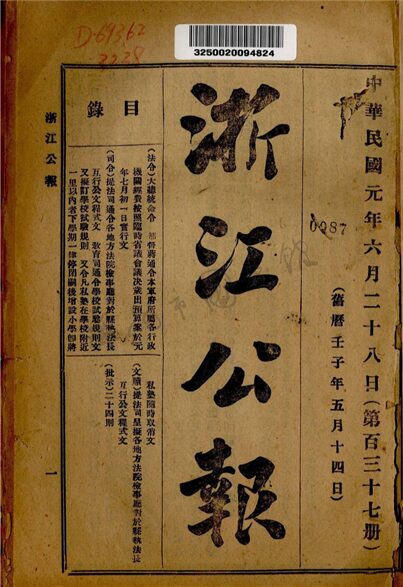 D-69362
2228
3250020094824
中華民國元年六月二十八日(第百三十七册)
(舊曆壬子年五月十四日)
0087
浙江公報
目錄
(法令)大總統命令 都督蔣通令本軍府所屬各行政
機關經費按照臨時省議會議決歲出預算案於元
年七月初一日實行文
(司令)提法司通令各地方法院檢事廳對於縣執法長
互行公文程式文 教育司通令學校試驗規則文
又擬訂學校試驗規則 又令凡私塾在學校附近
一里以內者下學期一律停閉嗣後增設小學即將
私塾隨時取消文
(文牘)提法司呈擬各地方法院檢事廳對於縣執法長
互行公文程式文
(批示)二十四則
浙江公報
一